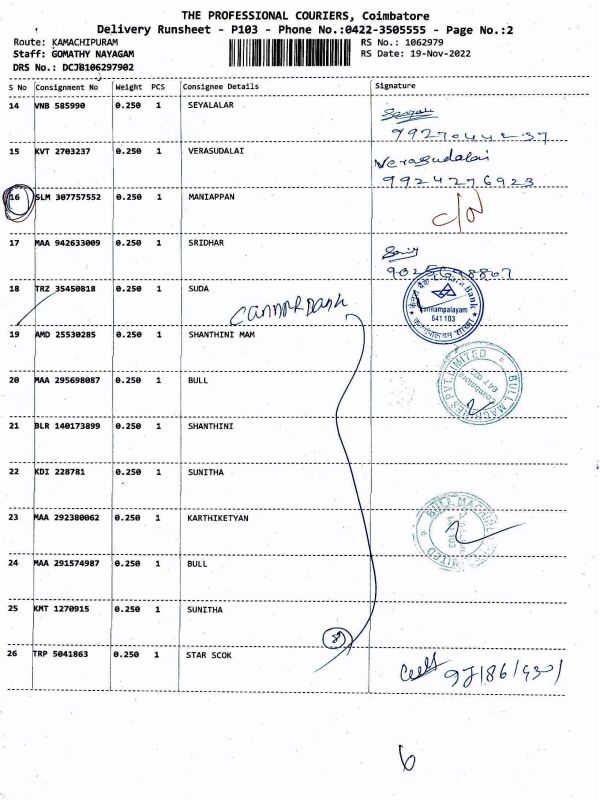 THE PROFESSIONAL COURIERS, Coimbatore
Delivery Runsheet - P103 - Phone No.:0422-3505555 - Page No.:2
Route: KAMACHIPURAM RS No.: 1062979
Staff: GOMATHY NAYAGAM RS Date: 19-Nov-2022
DRS No.: DCJB106297902
S No Consignment No Weight PCS Consignee Details Signature
14 VNB 585990 0.250 1 SEYALALAR
15 KVT 2703237 0.250 1 VERASUDALAI Verasudalai
9924276923
16 SLM 307757552 0.250 1 MANIAPPAN
17 MAA 942633009 0.250 1 SRIDHAR
18 TRZ 35450818 0.250 1 SUDA
641 103
19 AMD 25530285 0.250 1 SHANTHINI MAM
20 MAA 295698087 0.250 1 BULL BULL MACHINES PVT. LIMITED
Coimbatore
21 BLR 140173899 0.250 1 SHANTHINI
22 KDI 228781 0.250 1 SUNITHA
23 MAA 292380062 0.250 1 KARTHIKETYAN
24 MAA 291574987 0.250 1 BULL
25 KMT 1270915 0.250 1 SUNITHA
8
26 TRP 5041863 0.250 1 STAR SCOK
6